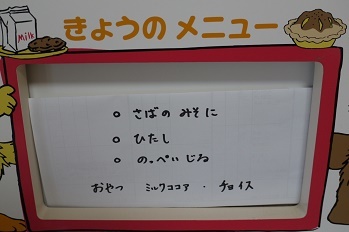 Milk
きょうの メニュー
○ さばの みそに
○ ひたし
○ のっぺいじる
おやつ ミルクココア ・ チョイス